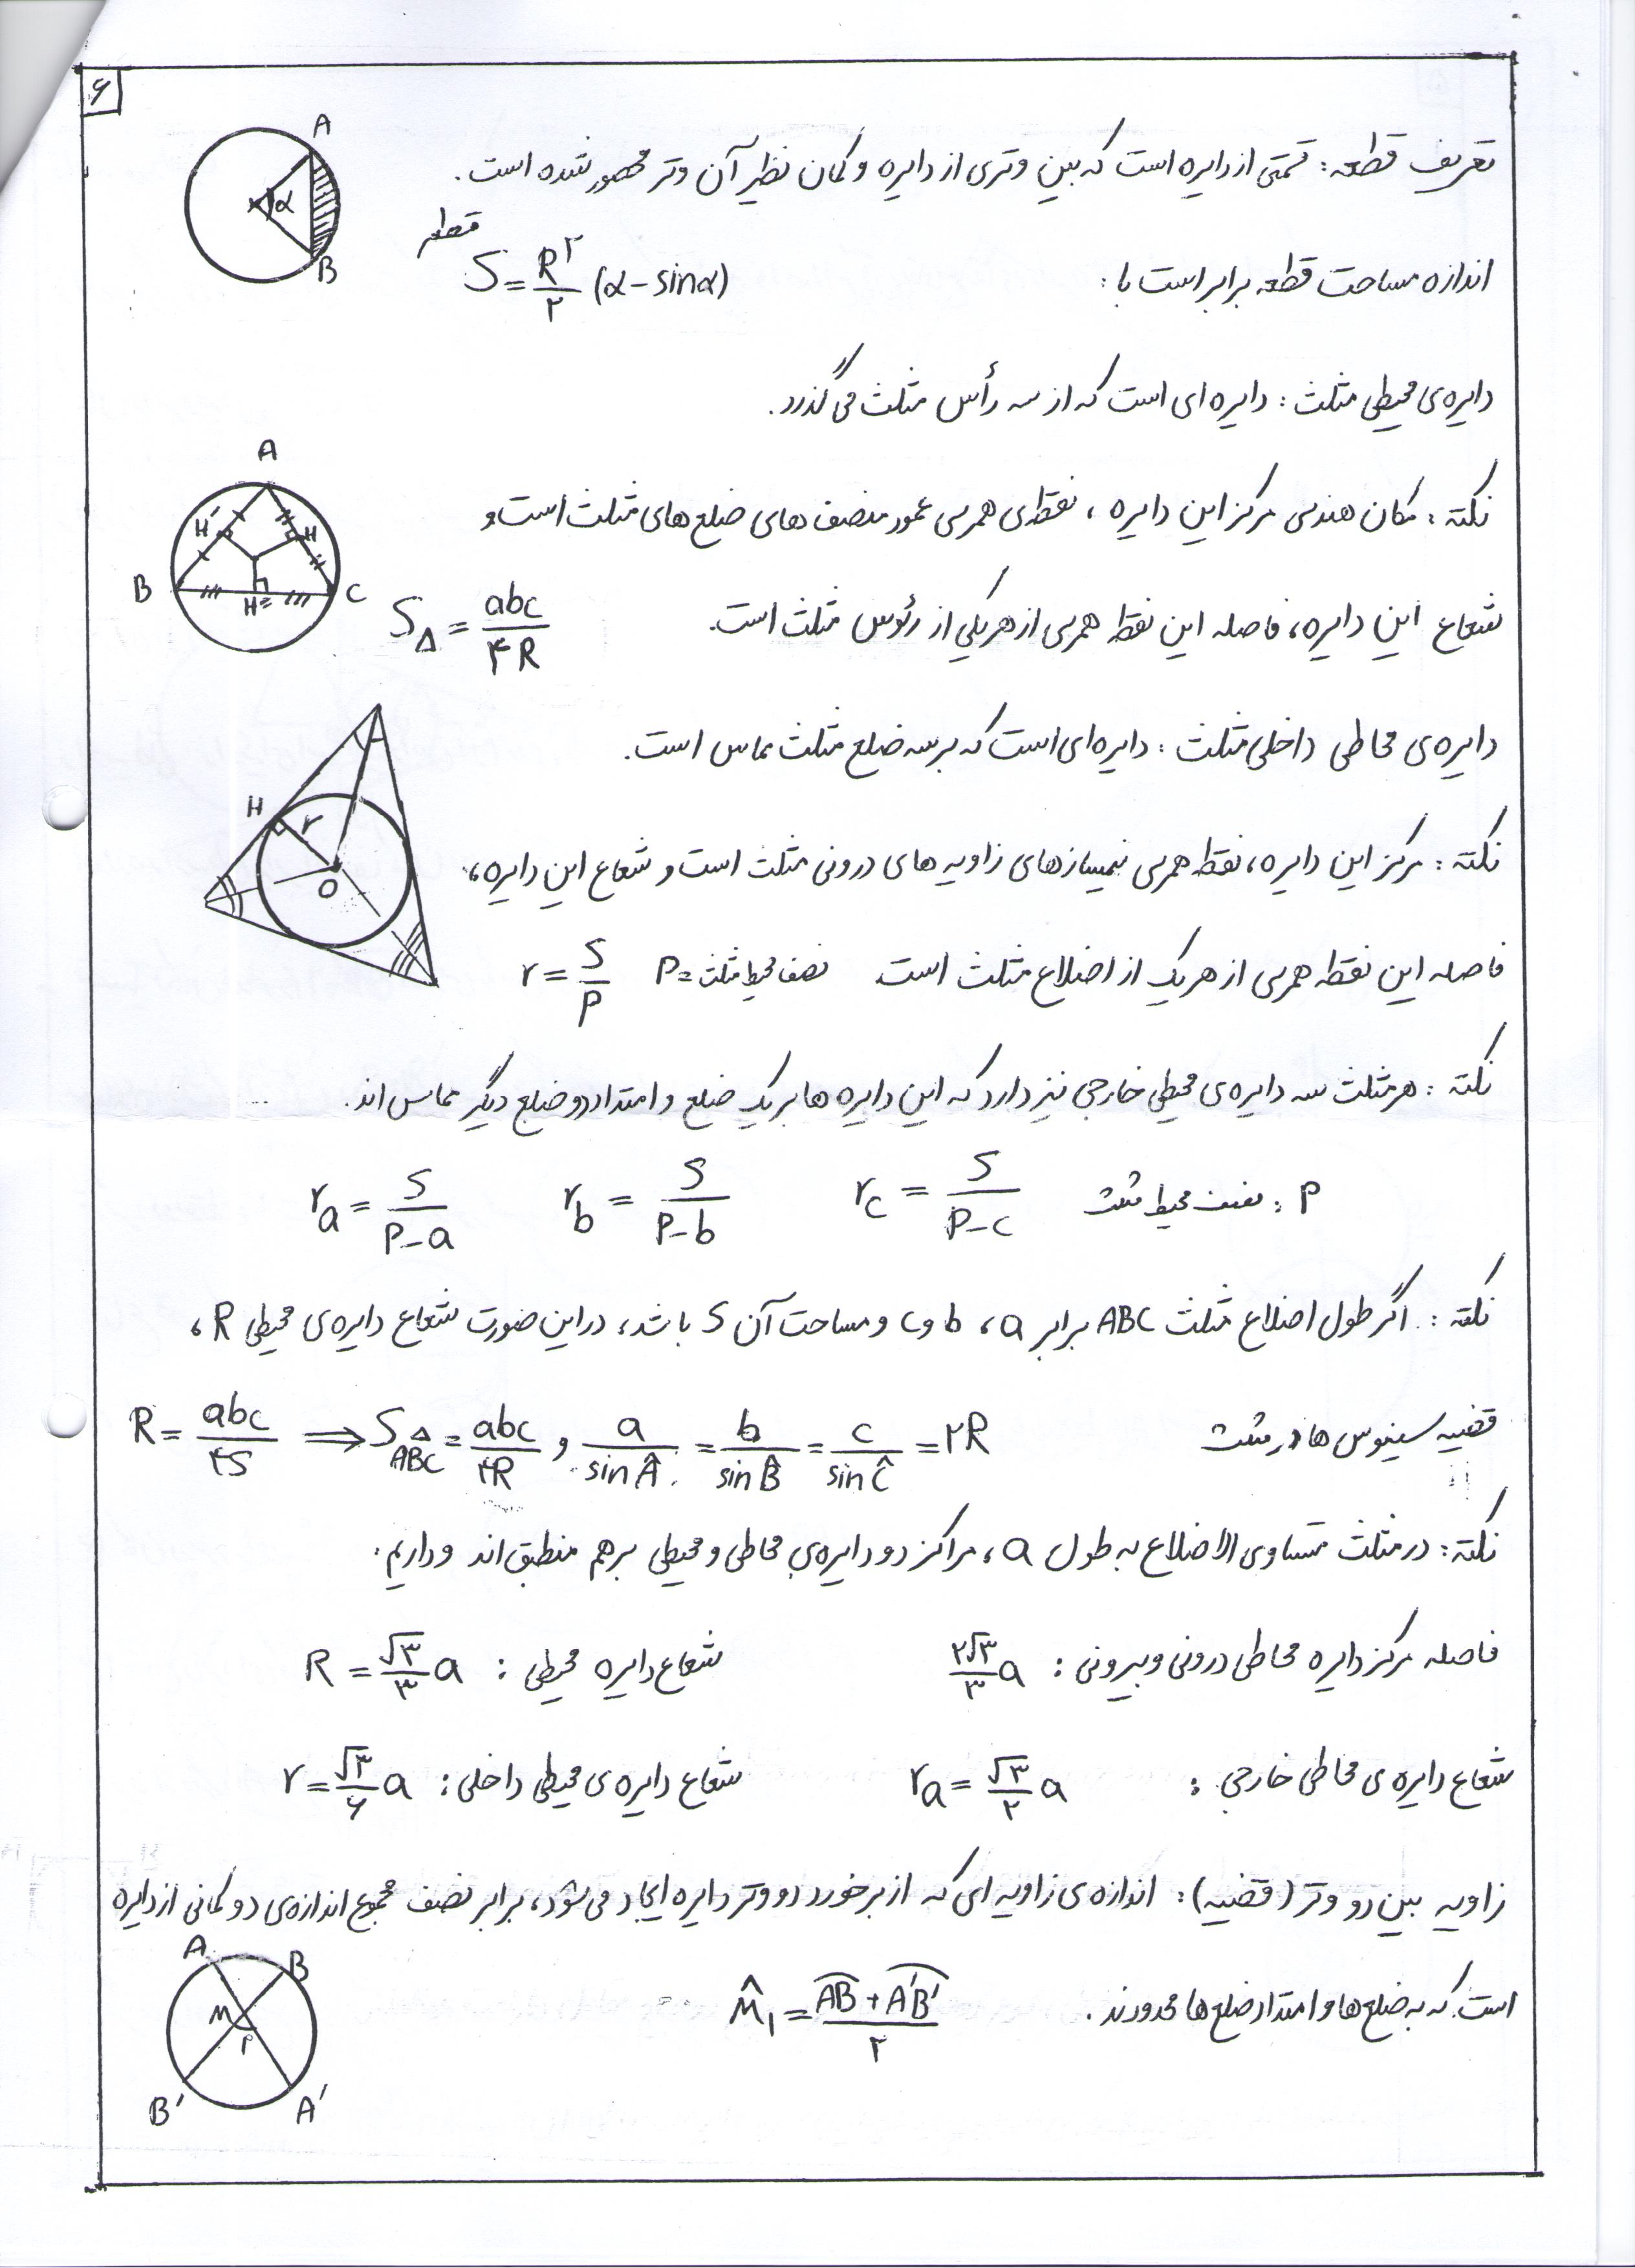 ۶
تعریف قطعه: قسمتی از دایره است که بین وتری از دایره و کمان نظیر آن وتر محصور شده است.
A
α
B
اندازه مساحت قطعه برابر است با: S قطعه = R^۲/۲ (α - sinα)
دایره‌ی محیطی مثلث: دایره ای است که از سه رأس مثلث می گذرد.
نکته: مکان هندسی مرکز این دایره، نقطه‌ی همرسی عمود منصف های ضلع های مثلث است و
شعاع این دایره، فاصله این نقطه همرسی از هر یکی از رئوس مثلث است. S△ = abc/۴R
A
H' H
B H" C
دایره‌ی محاطی داخلی مثلث: دایره‌ای است که بر سه ضلع مثلث مماس است.
نکته: مرکز این دایره، نقطه همرسی نیمسازهای زاویه های درونی مثلث است و شعاع این دایره،
فاصله این نقطه همرسی از هر یک از اضلاع مثلث است نصف محیط مثلث = P r = S/P
H r
O
نکته: هر مثلث سه دایره‌ی محیطی خارجی نیز دارد که این دایره ها بر یک ضلع و امتداد دو ضلع دیگر مماس اند.
r_a = S/P-a r_b = S/P-b r_c = S/P-c P: نصف محیط مثلث
نکته: اگر طول اضلاع مثلث ABC برابر a، b و c و مساحت آن S باشد، در این صورت شعاع دایره‌ی محیطی R،
قضیه سینوس ها در مثلث R = abc/۴S ⟹ S△ABC = abc/۴R , a/sinÂ = b/sinB̂ = c/sinĈ = ۲R
نکته: در مثلث متساوی الاضلاع به طول a، مراکز دو دایره‌ی محاطی و محیطی بر هم منطبق اند و داریم:
فاصله مرکز دایره محاطی درونی و بیرونی: ۲√۳/۳ a شعاع دایره محیطی: R = √۳/۳ a
شعاع دایره ی محاطی خارجی: r_a = √۳/۲ a شعاع دایره ی محیطی داخلی: r = √۳/۶ a
زاویه بین دو وتر (قضیه): اندازه‌ی زاویه ای که از برخورد دو وتر دایره ایجاد می شود، برابر نصف مجموع اندازه‌ی دو کمانی از دایره
است که به ضلع ها و امتداد ضلع ها محدودند. M̂₁ = AB + A'B'/۲
A B
M
B' A'